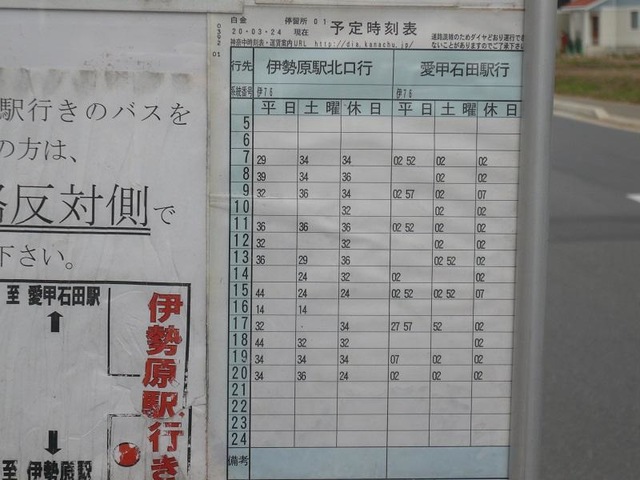 駅行きのバスを
の方は、
反対側で
下さい。
至 愛甲石田駅
伊勢原駅行き
至 伊勢原駅
0392 01
白金 停留所 01
20-03-24 現在 予定時刻表
神奈中時刻表・運賃案内URL http://dia.kanachu.jp/
道路混雑のためダイヤどおり運行でき
ないことがありますのでご了承下さい
行先 伊勢原駅北口行 愛甲石田駅行
系統番号 伊76 伊76
平日 土曜 休日 平日 土曜 休日
5
6
7 29 34 34 02 52 02 02
8 39 34 36 02 02
9 32 36 34 02 57 02 07
10 32 02 02
11 36 36 36 02 52 02 02
12 32 32 02 02
13 36 29 36 02 52 02
14 24 32 02 02
15 44 24 24 02 52 02 52 07
16 14 14
17 32 34 27 57 52 02
18 44 32 32 02
19 34 34 34 07 02 02
20 34 36 24 02 02 02
21
22
23
24
備考